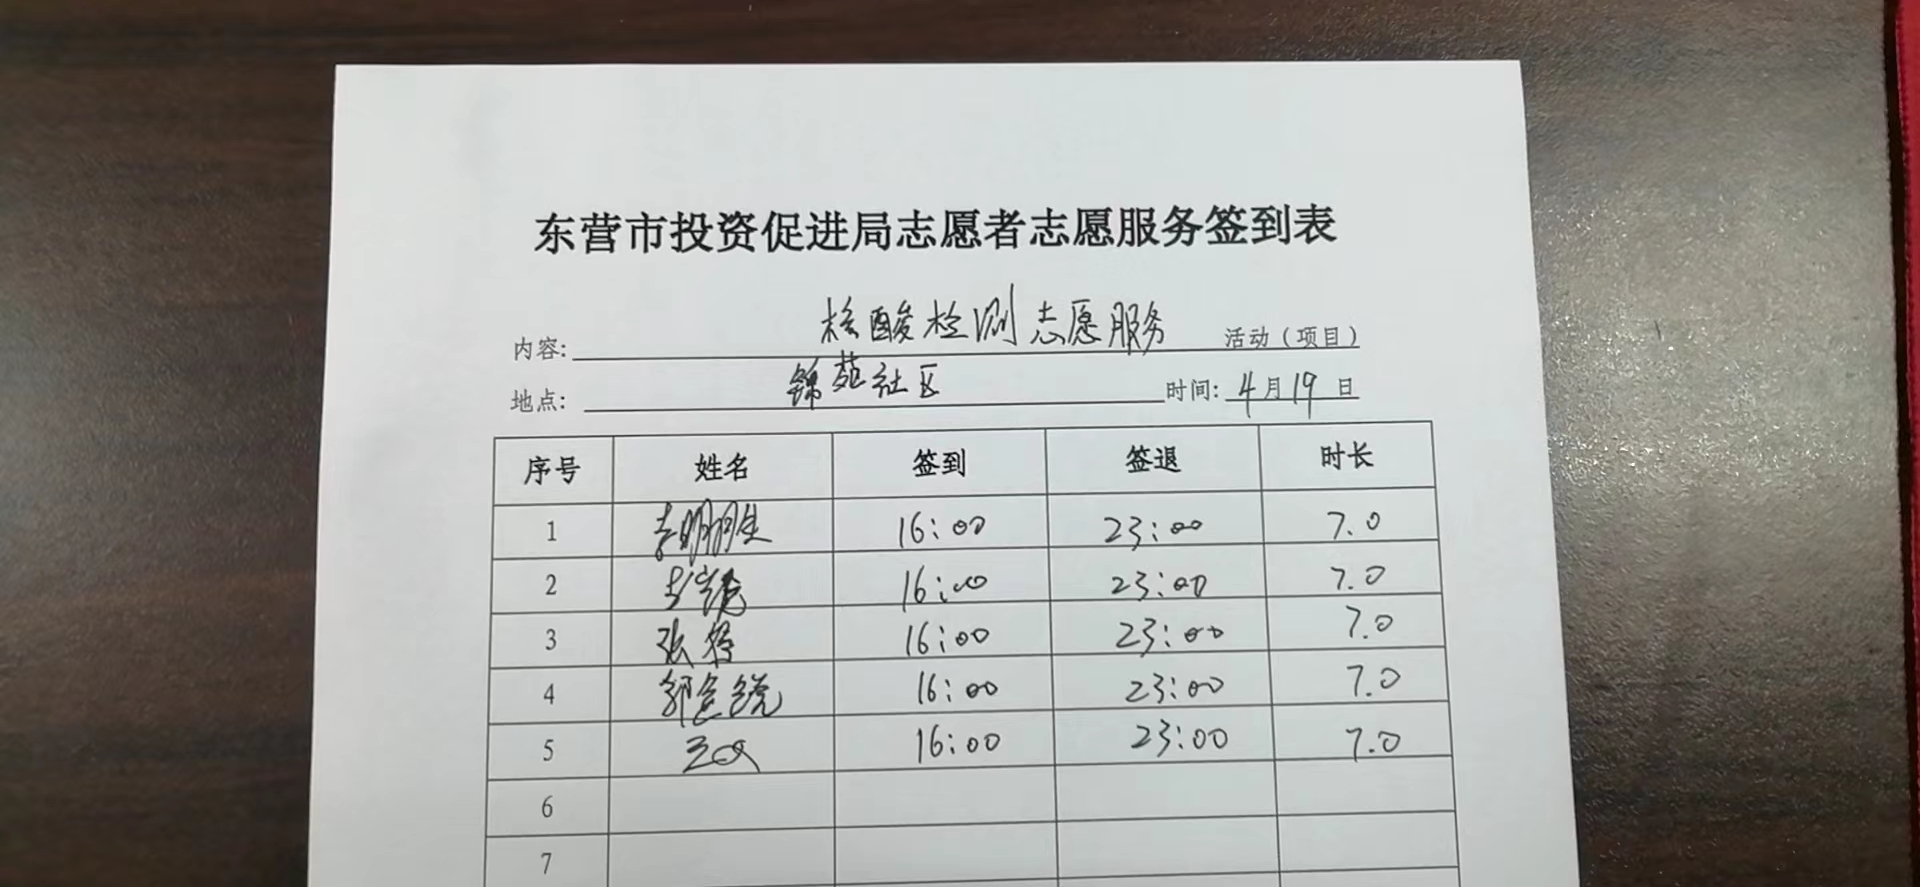 东营市投资促进局志愿者志愿服务签到表
内容: 核酸检测志愿服务 活动（项目）
地点: 锦苑社区 时间: 4月19日
序号 姓名 签到 签退 时长
1 16:00 23:00 7.0
2 16:00 23:00 7.0
3 张 16:00 23:00 7.0
4 郭 16:00 23:00 7.0
5 16:00 23:00 7.0
6
7